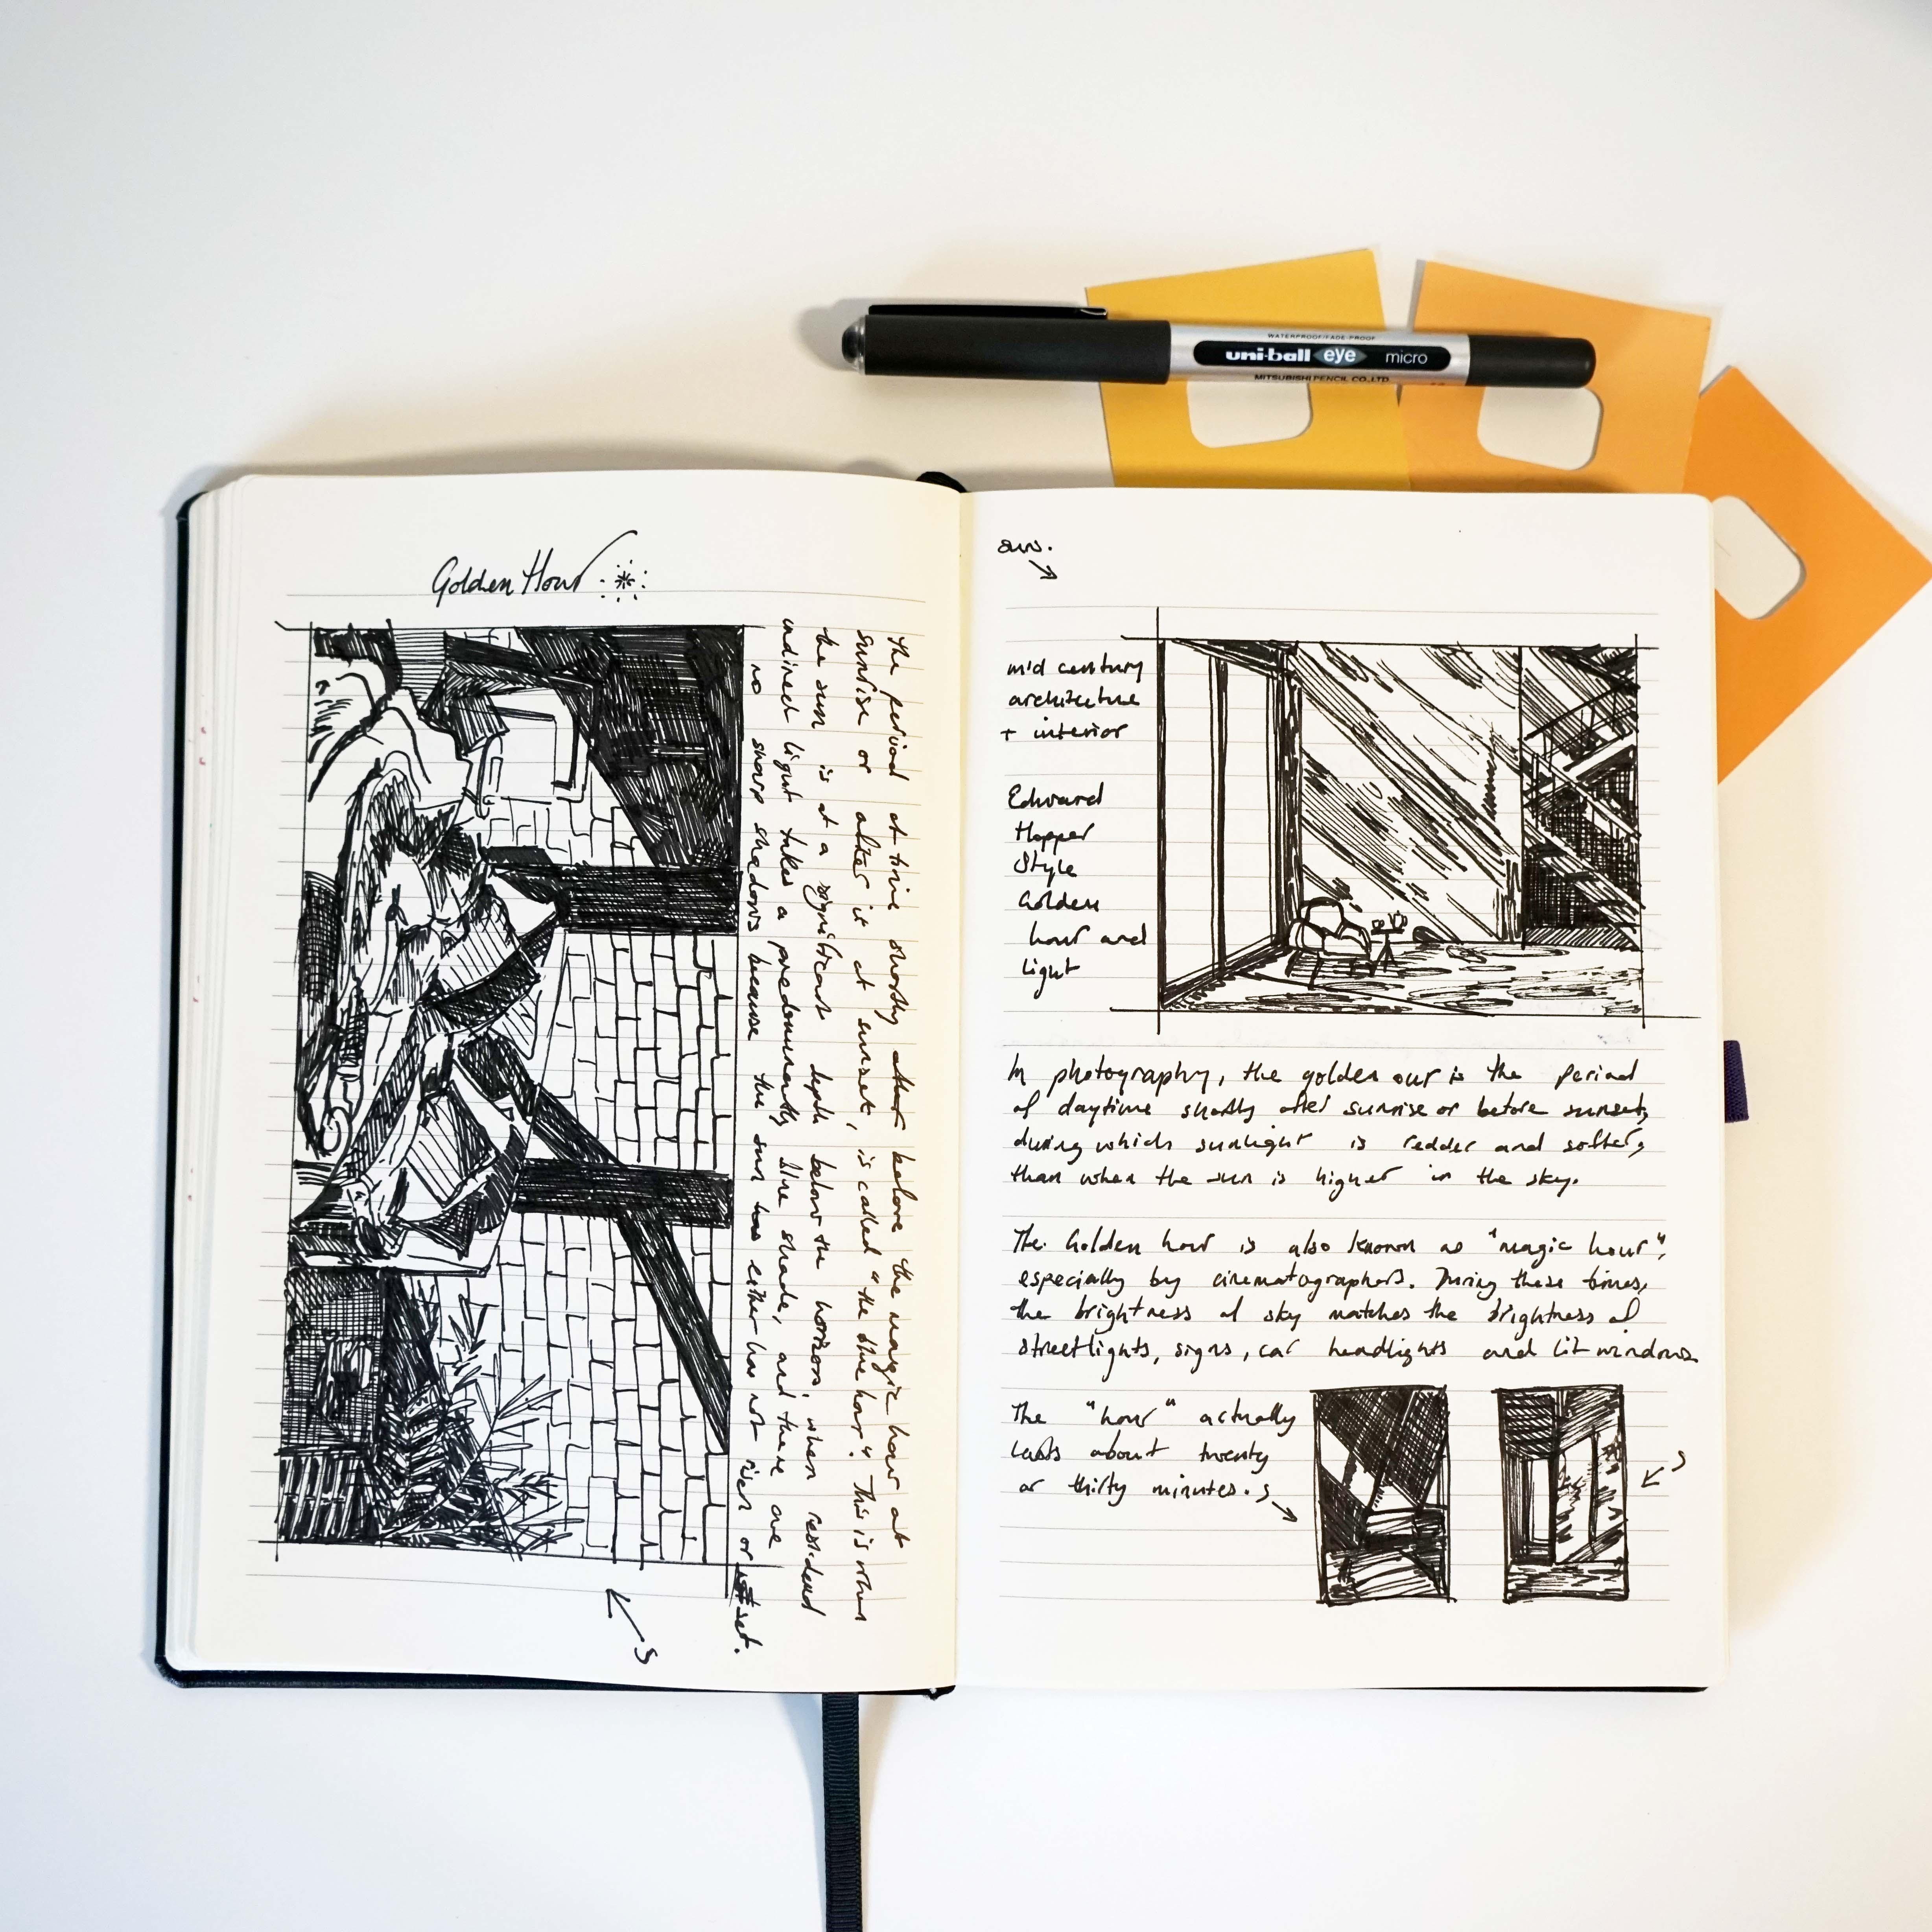 WATERPROOF/FADE-PROOF
uni-ball eye micro
MITSUBISHI PENCIL CO.,LTD.
Golden Hour
The period of time shortly after before the magic hour at
sunrise or after it at sunset, is called "the blue hour". This is when
the sun is at a significant depth below the horizon, when residual
indirect light takes a predominantly blue shade, and there are
no sharp shadows because the sun has either has not risen or set.
S
sun.
mid century
architecture
+ interior
Edward
Hopper
Style
Golden
hour and
light
In photography, the golden our is the period
of daytime shortly after sunrise or before sunset,
during which sunlight is redder and softer,
than when the sun is higher in the sky.
The Golden hour is also known as "magic hour",
especially by cinematographers. During these times,
the brightness of sky matches the brightness of
streetlights, signs, car headlights and lit windows
The "hour" actually
lasts about twenty
or thirty minutes. S
S